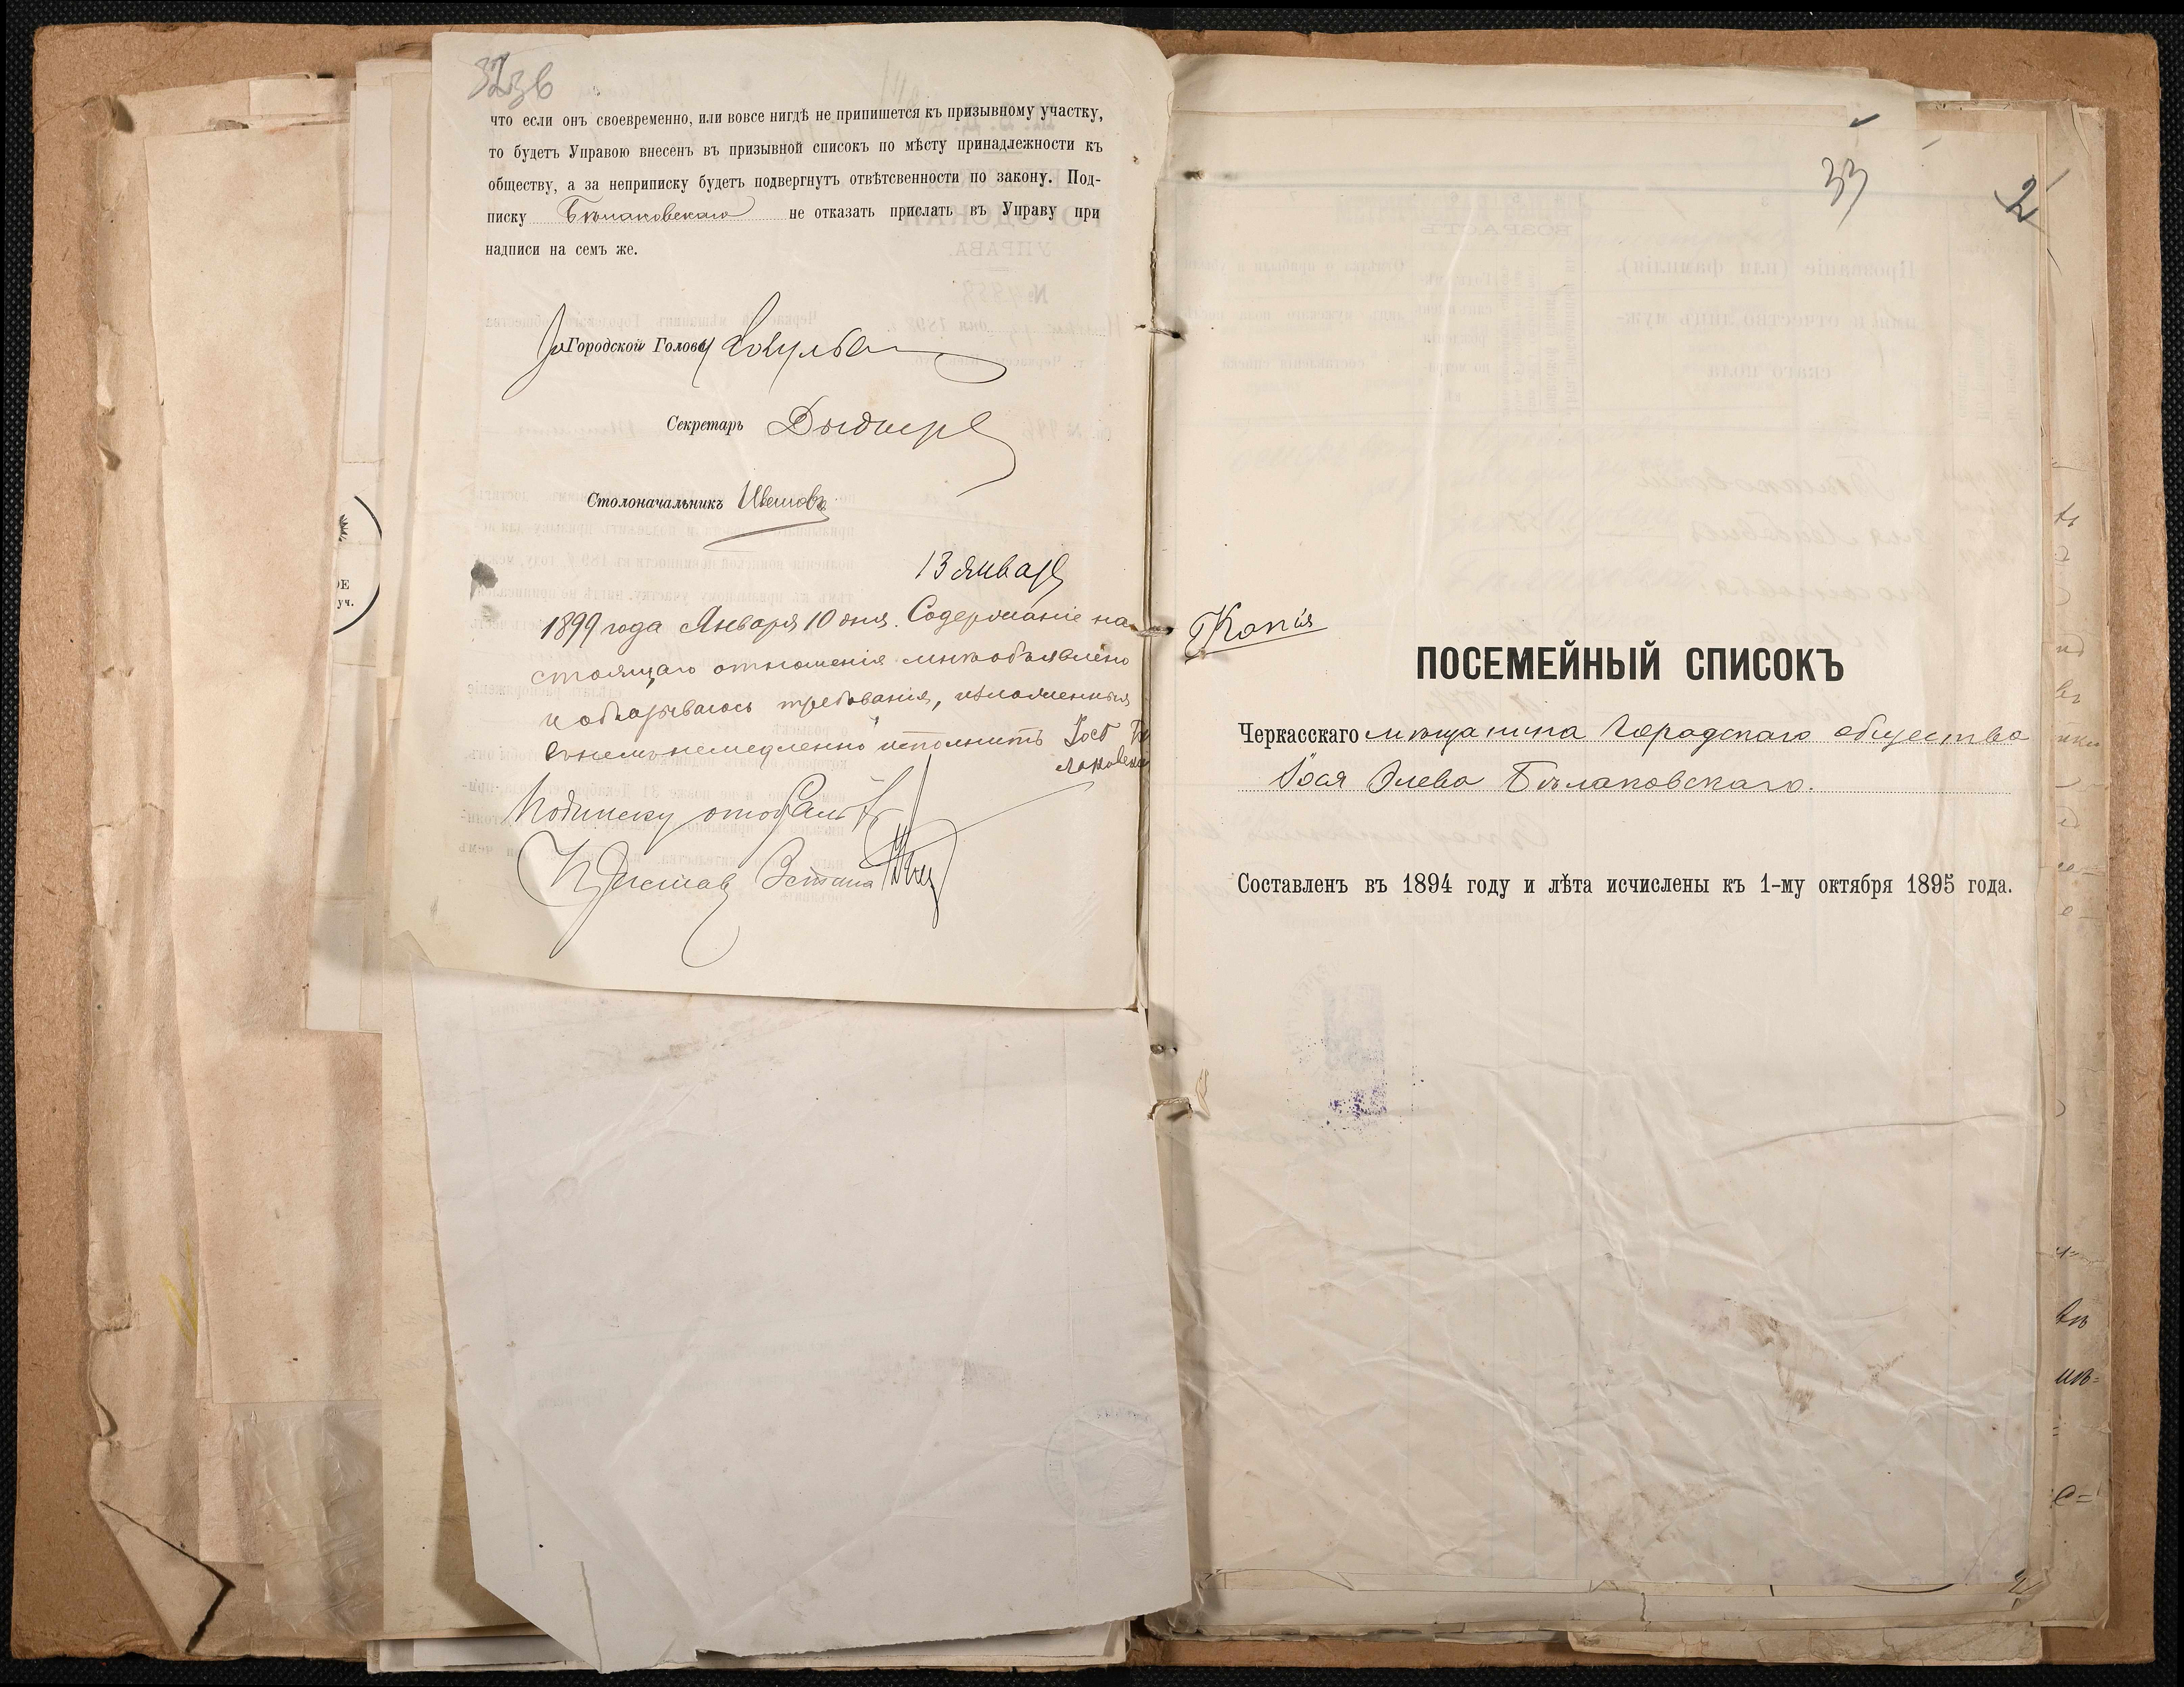 что если онъ своевременно, или вовсе нигдѣ не припишется къ призывному участку,
то будетъ Управою внесенъ въ призывной списокъ по мѣсту принадлежности къ
обществу, а за неприписку будетъ подвергнутъ отвѣтсвенности по закону. Под-
писку Бѣлаковскаго не отказать прислать въ Управу при
надписи на семъ же.
Городской Голова
Секретарь
Столоначальникъ
13 января
1899 года Января 10 дня. Содержаніе на
стоящаго отношенія мнѣ объявлено
и обязываюсь требованія, изложенныя
въ немъ немедленно исполнить
Подписку отобралъ
Приставъ
33
2
Копія
ПОСЕМЕЙНЫЙ СПИСОКЪ
Черкасскаго мѣщанина Городскаго общества
Іося Элева Бѣлаковскаго.
Составленъ въ 1894 году и лѣта исчислены къ 1-му октября 1895 года.